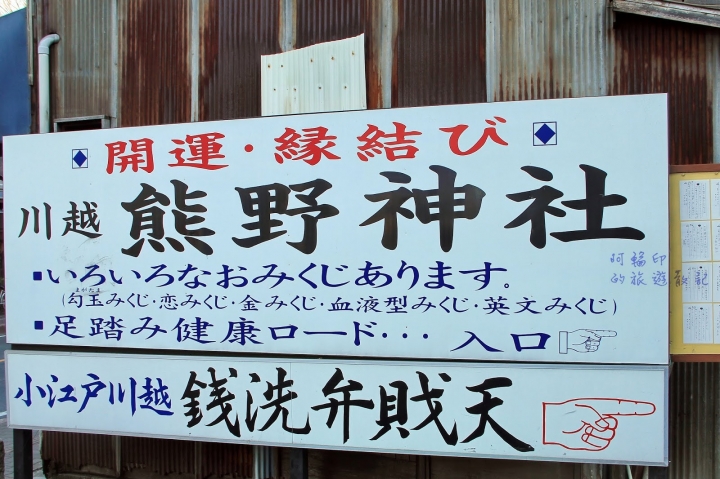 開運・縁結び
川越 熊野神社
■いろいろなおみくじあります。
まがたま
(勾玉みくじ・恋みくじ・金みくじ・血液型みくじ・英文みくじ)
■足踏み健康ロード・・・ 入口
小江戸川越 銭洗弁財天
阿福印
的旅遊散記